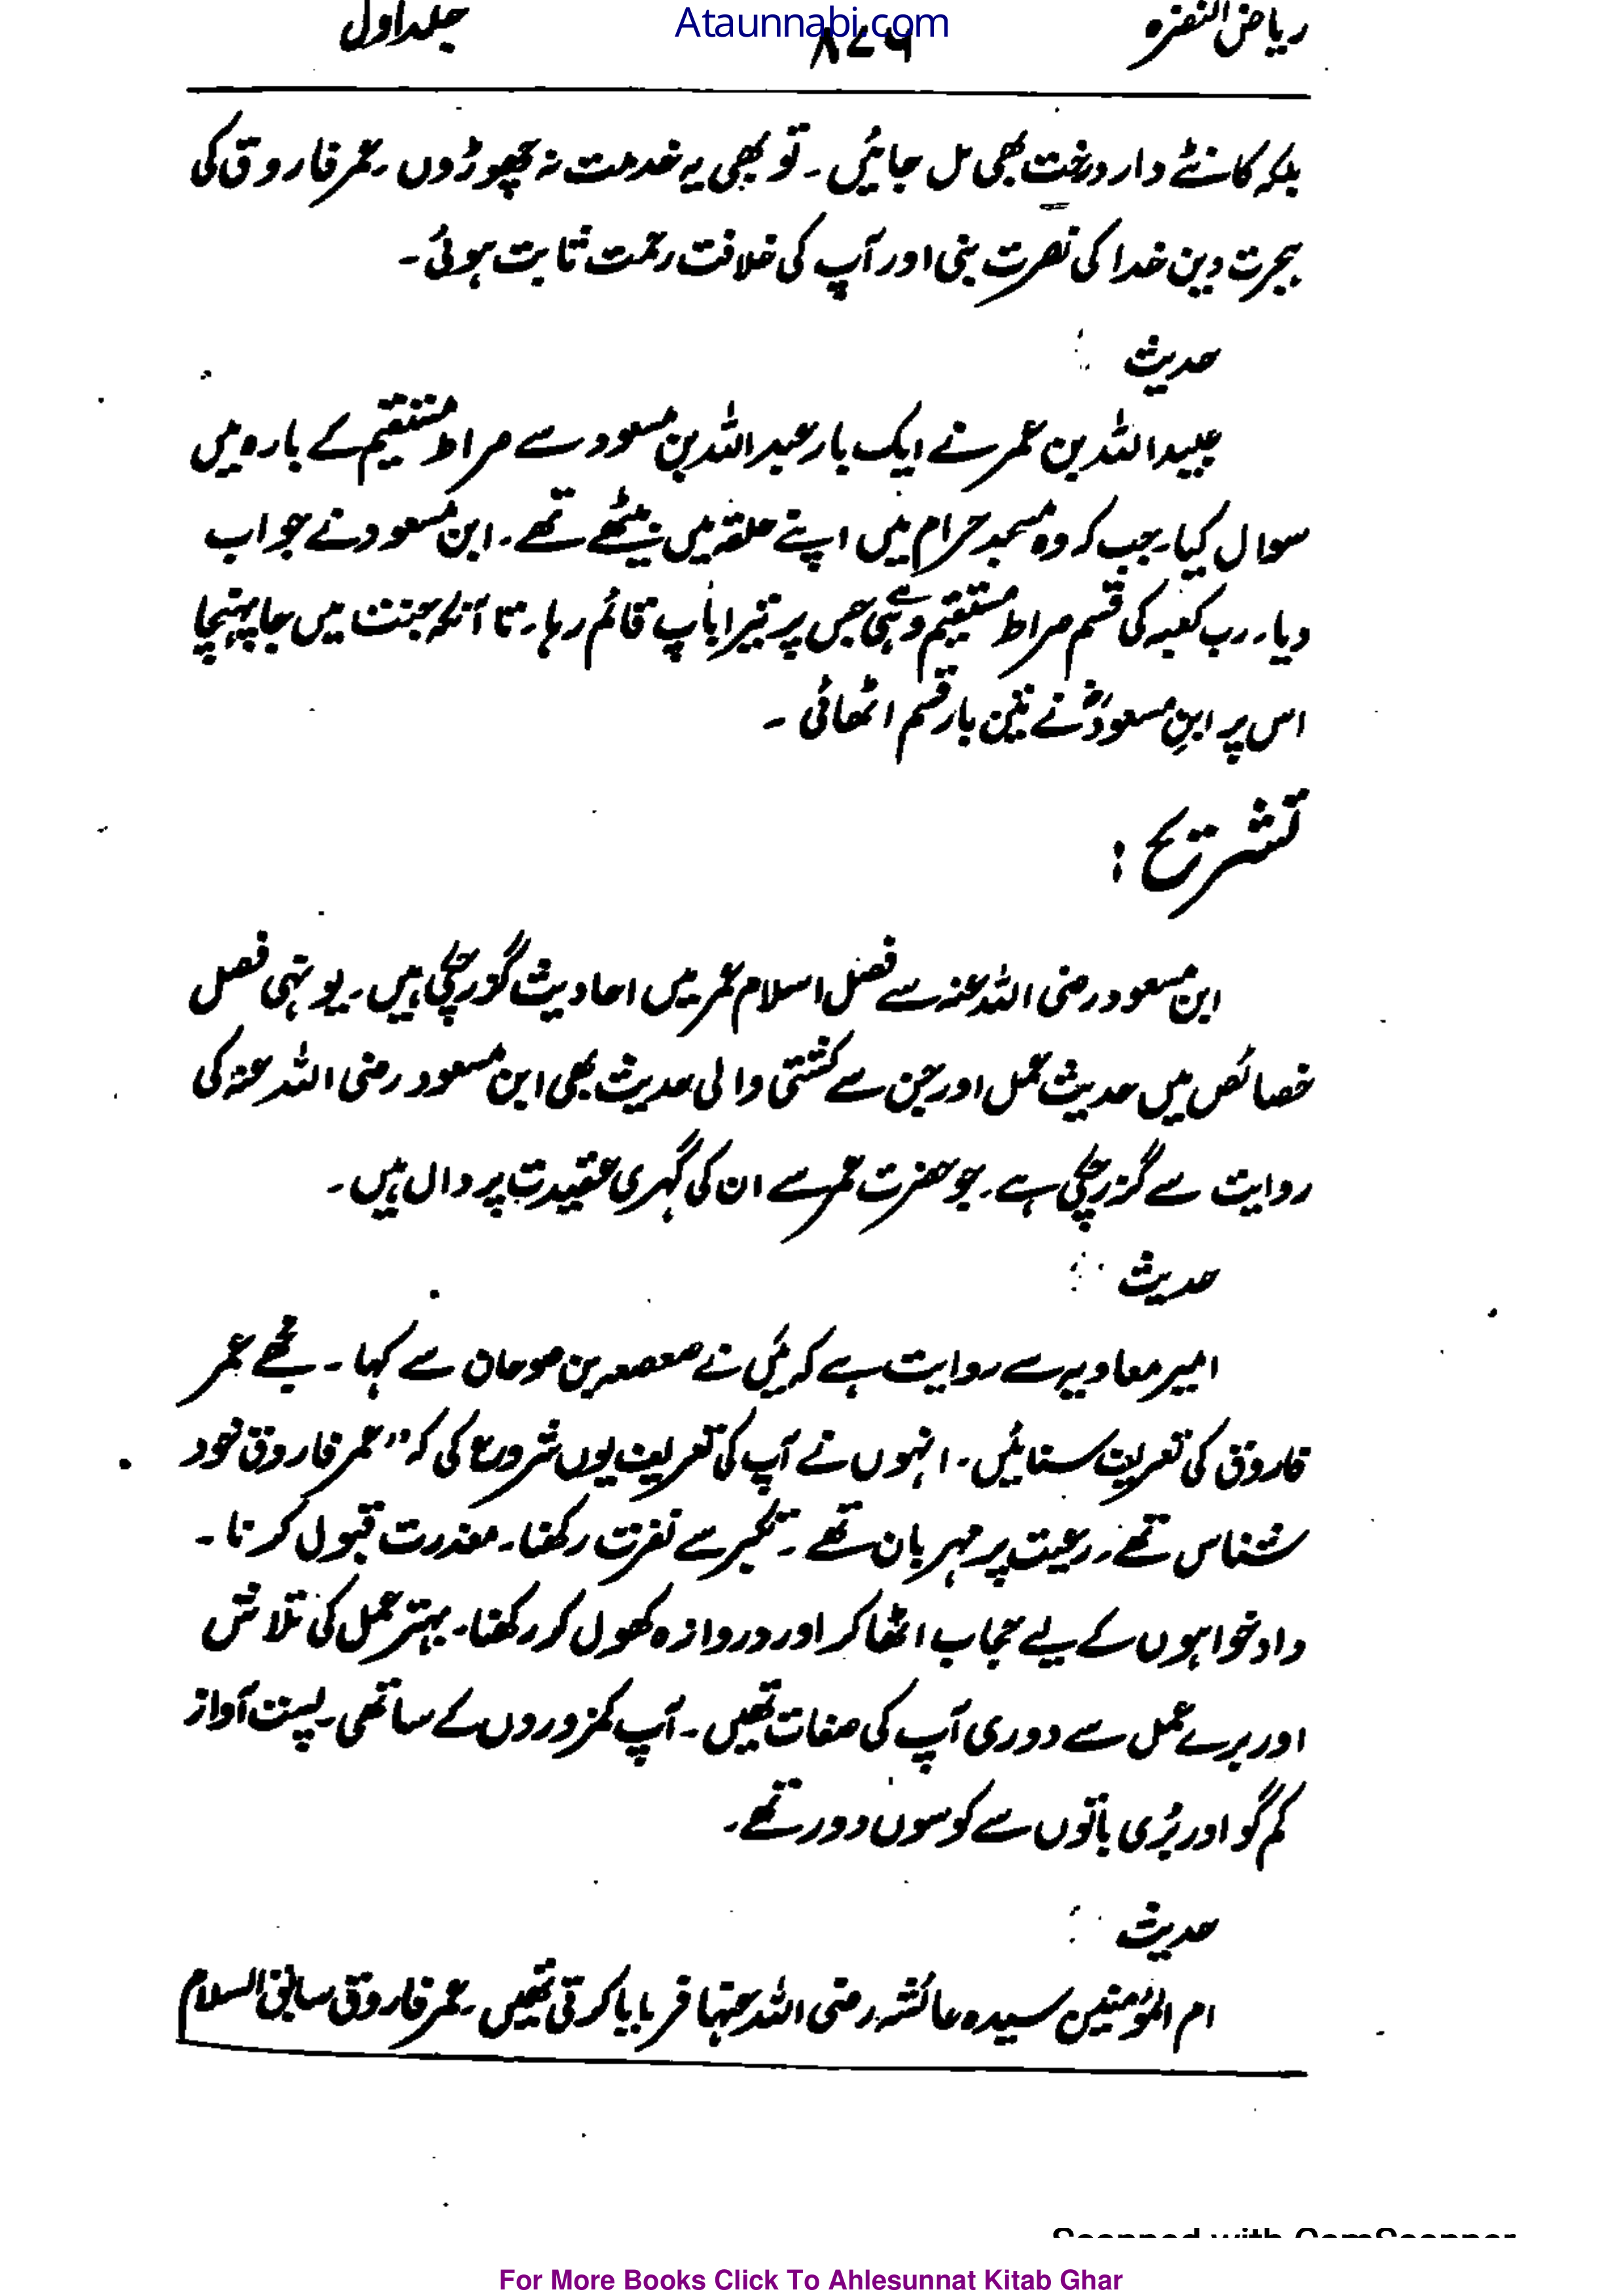 Ataunnabi.com
ریاض النضرہ ۸۷۶ جلد اول
بلکہ کانٹے دار درخت بھی مل جائیں۔ تو بھی یہ خدمت نہ چھوڑوں۔ عمر فاروق کی
ہجرت دین خدا کی نصرت بنی اور آپ کی خلافت رحمت ثابت ہوئی۔
حدیث :
عبید اللہ بن عمر نے ایک بار عبد اللہ بن مسعود سے صراط مستقیم کے بارہ میں
سوال کیا۔ جب کہ وہ مسجد حرام میں اپنے حلقہ میں بیٹھے تھے۔ ابن مسعود نے جواب
دیا۔ رب کعبہ کی قسم صراط مستقیم وہی ہے جس پر تیرا باپ قائم رہا۔ تا آنکہ جنت میں جا پہنچا
اس پر ابنِ مسعودؓ نے تین بار قسم اٹھائی ۔
تشریح :
ابن مسعود رضی اللہ عنہ سے فصل اسلام عمر میں احادیث گزر چکی ہیں۔ یونہی فصل
خصائص میں حدیث عمل اور جن سے کشتی والی حدیث بھی ابن مسعود رضی اللہ عنہ کی
روایت سے گزر چکی ہے۔ جو حضرت عمر سے ان کی گہری عقیدت پر دال ہیں۔
حدیث :
امیر معاویہ سے روایت ہے کہ میَں نے صعصعہ بن صوحان سے کہا ۔ مجھے عمر
فاروق کی تعریف سنائیں۔ انہوں نے آپ کی تعریف یوں شروع کی کہ ”عمر فاروق خود
شناس تھے۔ رعیت پر مہربان تھے ۔ تکبر سے نفرت رکھنا۔ معذرت قبول کرنا ۔
داد خواہوں کے لیے حجاب اٹھا کر اور دروازہ کھول کر رکھنا۔ بہتر عمل کی تلاش
اور برے عمل سے دوری آپ کی صفات تھیں ۔ آپ کمزوروں کے ساتھی۔ پست آواز
کم گو اور بُری باتوں سے کوسوں دور تھے۔
حدیث :
ام المؤمنین سیدہ عائشہ رضی اللہ عنہا فرمایا کرتی تھیں۔ عمر فاروق سابق السلام
Scanned with CamScanner
For More Books Click To Ahlesunnat Kitab Ghar